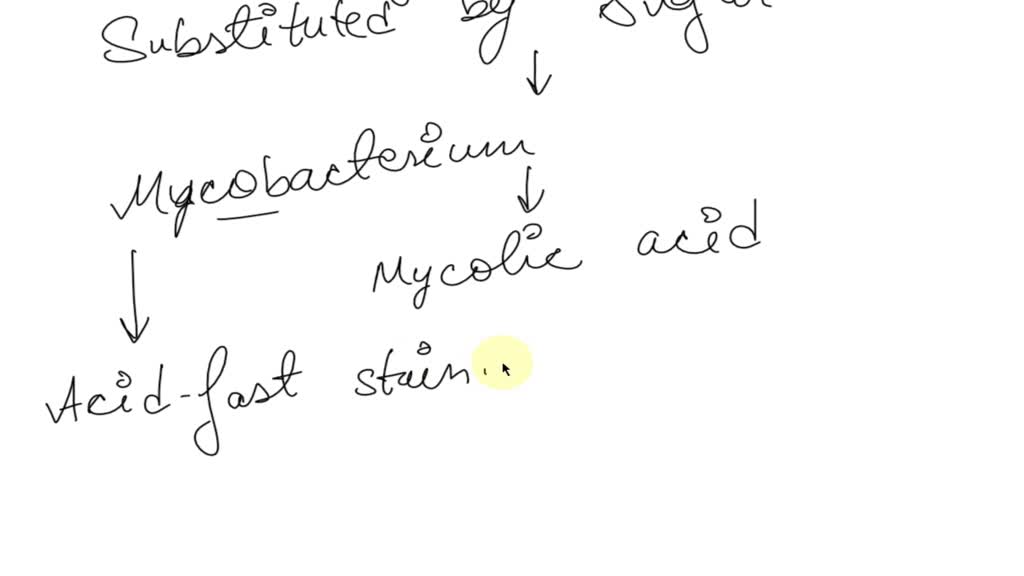 Substituted by Sugar
Mycobacterium
Mycolic acid
Acid-fast stain